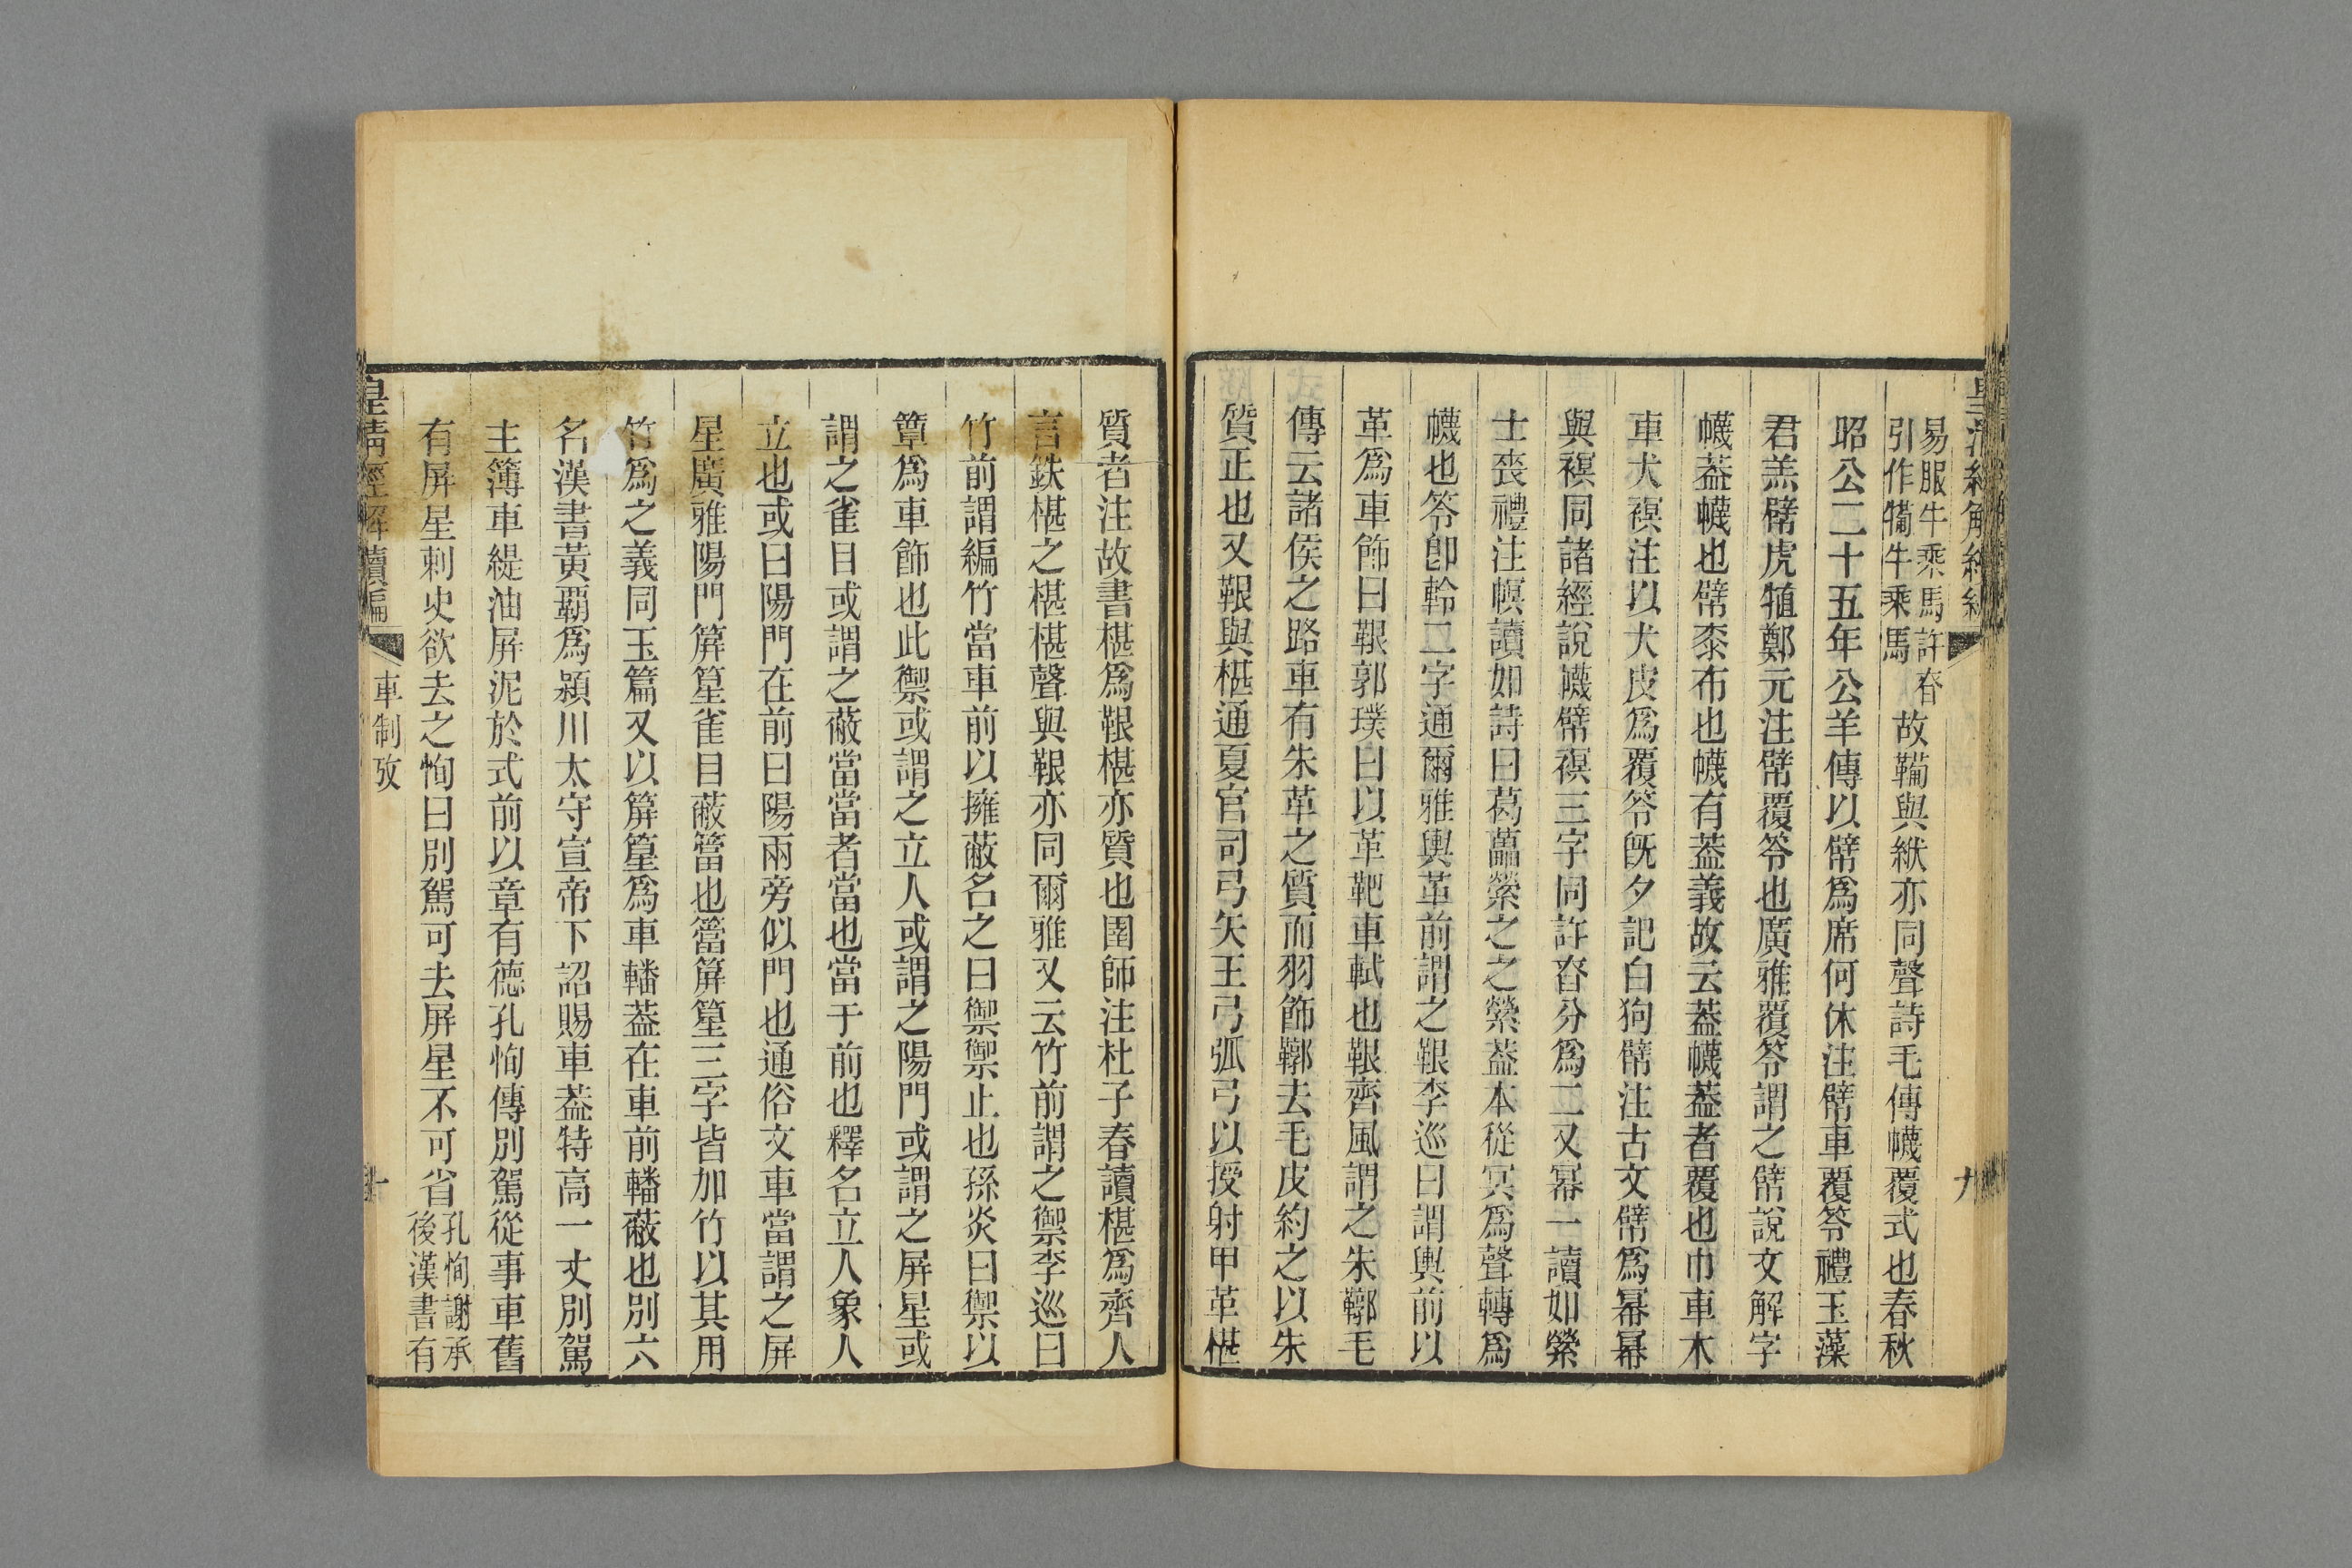 易服牛乘馬許春
引作犕牛乘馬
故鞴與紱亦同聲詩毛傳幭覆式也春秋
昭公二十五年公羊傳以幦爲席何休注幦車覆笭禮玉藻
君羔幦虎犆鄭元注幦覆笭也廣雅覆笭謂之幦說文解字
幭葢幭也幦桼布也幭有葢義故云葢幭葢者覆也巾車木
車犬𧜀注以犬皮爲覆笭旣夕記白狗幦注古文幦爲幂幂
與𧜀同諸經說幭幦𧜀三字同許㫺分爲二又幂一讀如縈
士喪禮注幎讀如詩曰葛藟縈之之縈葢本從冥爲聲轉爲
幭也笭卽軨二字通爾雅輿革前謂之鞎李巡曰謂輿前以
革爲車飾曰鞎郭璞曰以革靶車軾也鞎齊風謂之朱鞹毛
傳云諸侯之路車有朱革之質而羽飾鞹去毛皮約之以朱
質正也又鞎與椹通夏官司弓矢王弓弧弓以授射甲革椹
質者注故書椹爲鞎椹亦質也圉師注杜子春讀椹爲齊人
言鈇椹之椹椹聲與鞎亦同爾雅又云竹前謂之禦李巡曰
竹前謂編竹當車前以擁蔽名之曰禦禦止也孫炎曰禦以
簟爲車飾也此禦或謂之立人或謂之陽門或謂之屏星或
謂之雀目或謂之蔽當當者當也當于前也釋名立人象人
立也或曰陽門在前曰陽兩旁似門也通俗文車當謂之屏
星廣雅陽門箳篂雀目蔽簹也簹箳篂三字皆加竹以其用
竹爲之義同玉篇又以箳篂爲車轓葢在車前轓蔽也別六
名漢書黃霸爲潁川太守宣帝下詔賜車葢特高一丈別駕
主簿車緹油屏泥於式前以章有德孔恂傳別駕從事車舊
有屏星刺史欲去之恂曰別駕可去屏星不可省
孔恂謝承
後漢書有
皇清經解續編
車制攷
十
九